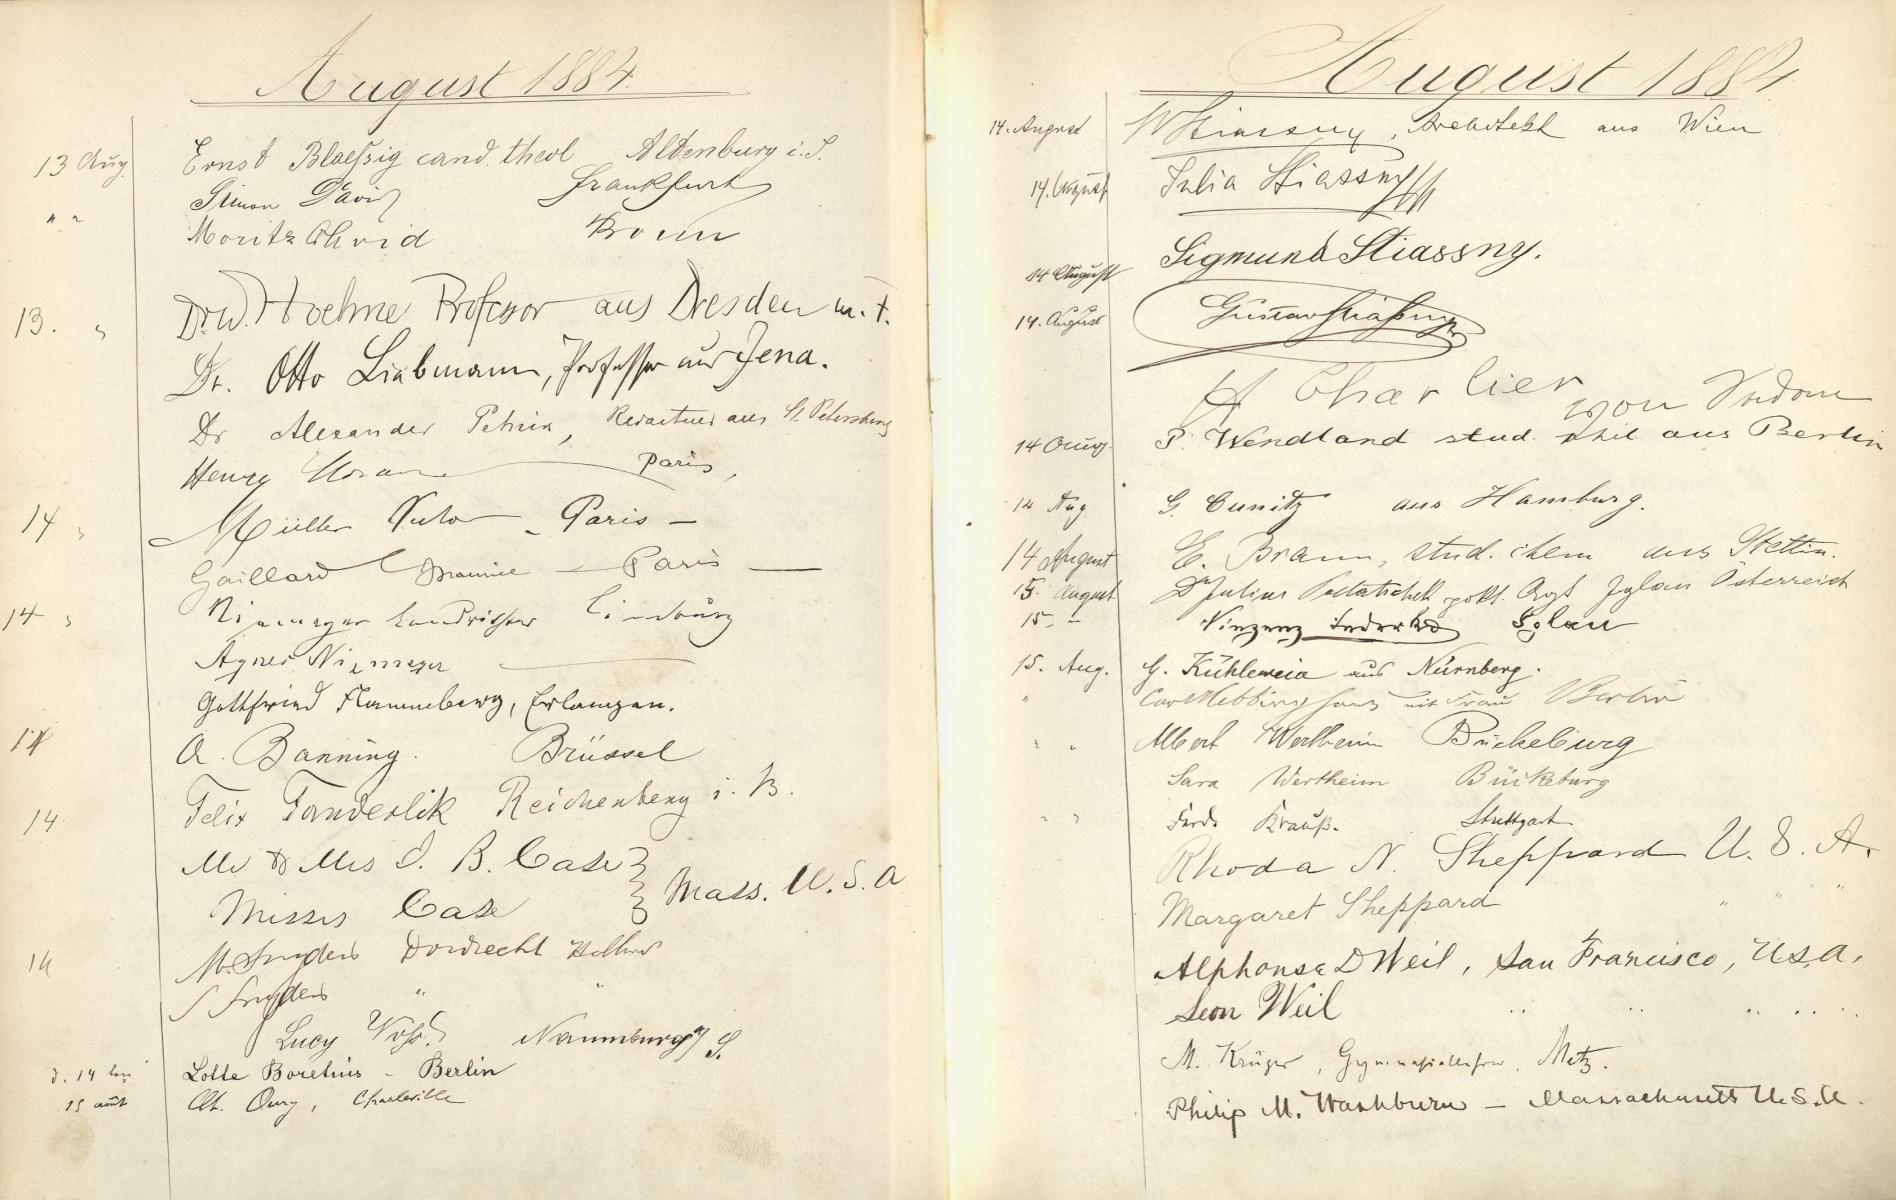 August 1884.
13 Aug. Ernst Blaeßig cand. theol Altenburg i. S.
Simon David Frankfurt
" " Moritz David Bonn
13. " Dr. W. Hoehne Professor aus Dresden m. T.
Dr. Otto Liebmann, Professor aus Jena.
Dr Alexander Petrick, Redacteur aus St. Petersburg
Henry Paris,
14 " Müller Victor - Paris -
Gaillard Maurice - Paris -
14 " Niemeyer Landrichter Limburg
Agnes Niemeyer
Gottfried Flammberg, Erlangen.
14 A. Banning. Brüssel
Felix Tanderlik Reichenberg i. B.
14
Mr & Mrs I. B. Case
Misses Case Mass. U. S. A
14 M. Snyders Dordrecht Holland
S Snyders " "
Lucy Voß. Naumburg a/ S.
d. 14 ten Lotte Boretius - Berlin
15 août Ch. Oury, Charleville
August 1884
14. August W Stiassny, Architekt aus Wien
14. August Julia Stiassny
14 August Sigmund Stiassny.
14. August Gustav Stiaßny
H Charlier von
14 Aug. P. Wendland stud. phil aus Berlin
14 Aug G. Cunitz aus Hamburg.
14 August E. Braun, stud. chem aus Stettin.
15. August Dr Julius prkt. Arzt Iglau Österreich
15. " Vinzenz Inderka Iglau
15. Aug. G. Kühlewein aus Nürnberg.
" Carl Hebbinghaus mit Frau Berlin
" " Albert Wertheim Bückeburg
Sara Wertheim Bückeburg
" " Ferd. Krauß. Stuttgart
Rhoda N. Sheppard U. S. A.
Margaret Sheppard " " "
Alphonse D Weil, San Francisco, U.S.A.
Leon Weil " " " " "
M. Krüger, Gymnasiallehrer, Metz.
Philip M. Washburn - Massachusetts U.S.A.